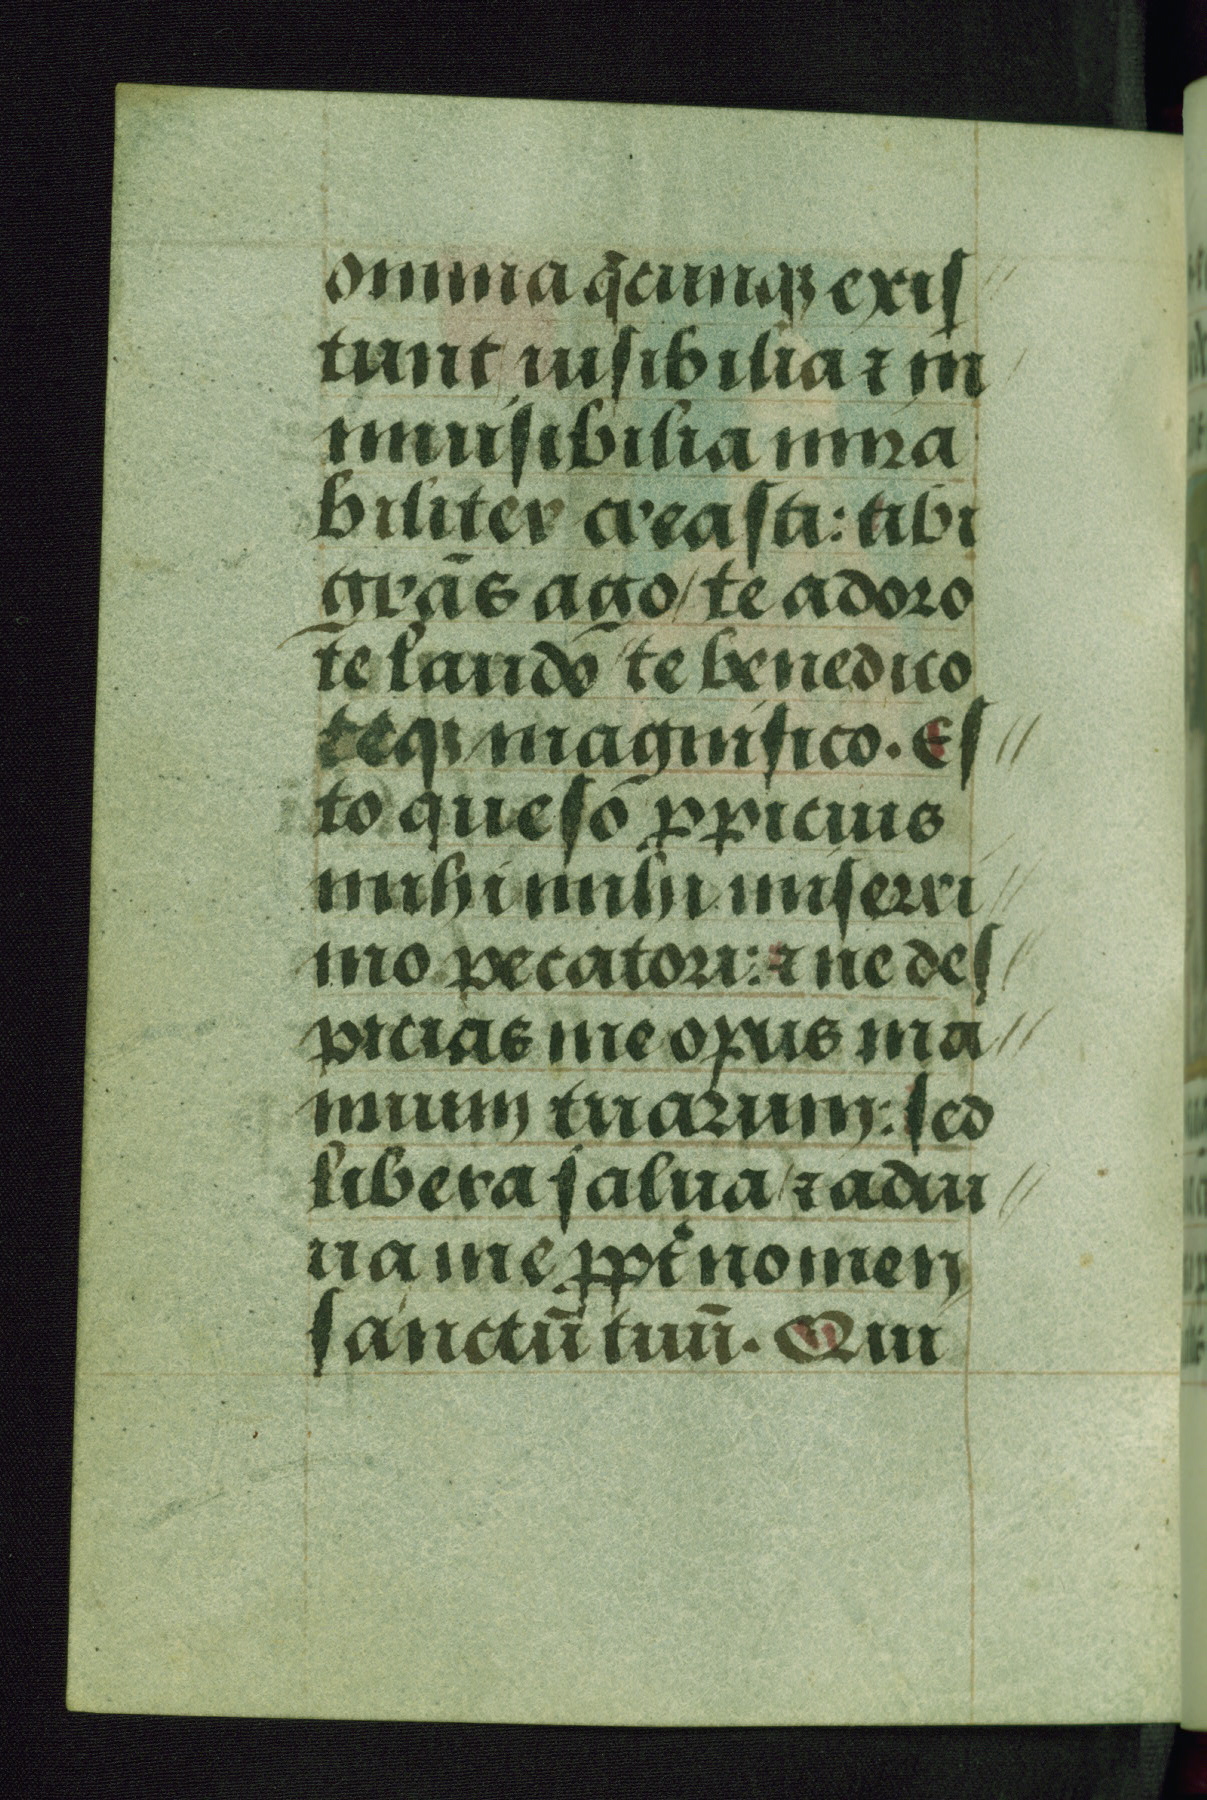 omnia q̄cunqꝫ exiſ
tunt uiſibilia ⁊ in
inuiſibilia mira
biliter creaſti: tibi
gr̄as ago / te adoro
te laudo / te benedico
teqꝫ magnifico. Eſ
to queſo ꝓpicius
mihi mihi miſerri
mo pecatori: ⁊ ne deſ
picias me opus ma
nuum tuarum: ſed
libera ſalua / ⁊ adiu
ua me ꝓpt̄ nomen
ſanctū tuū. Qui